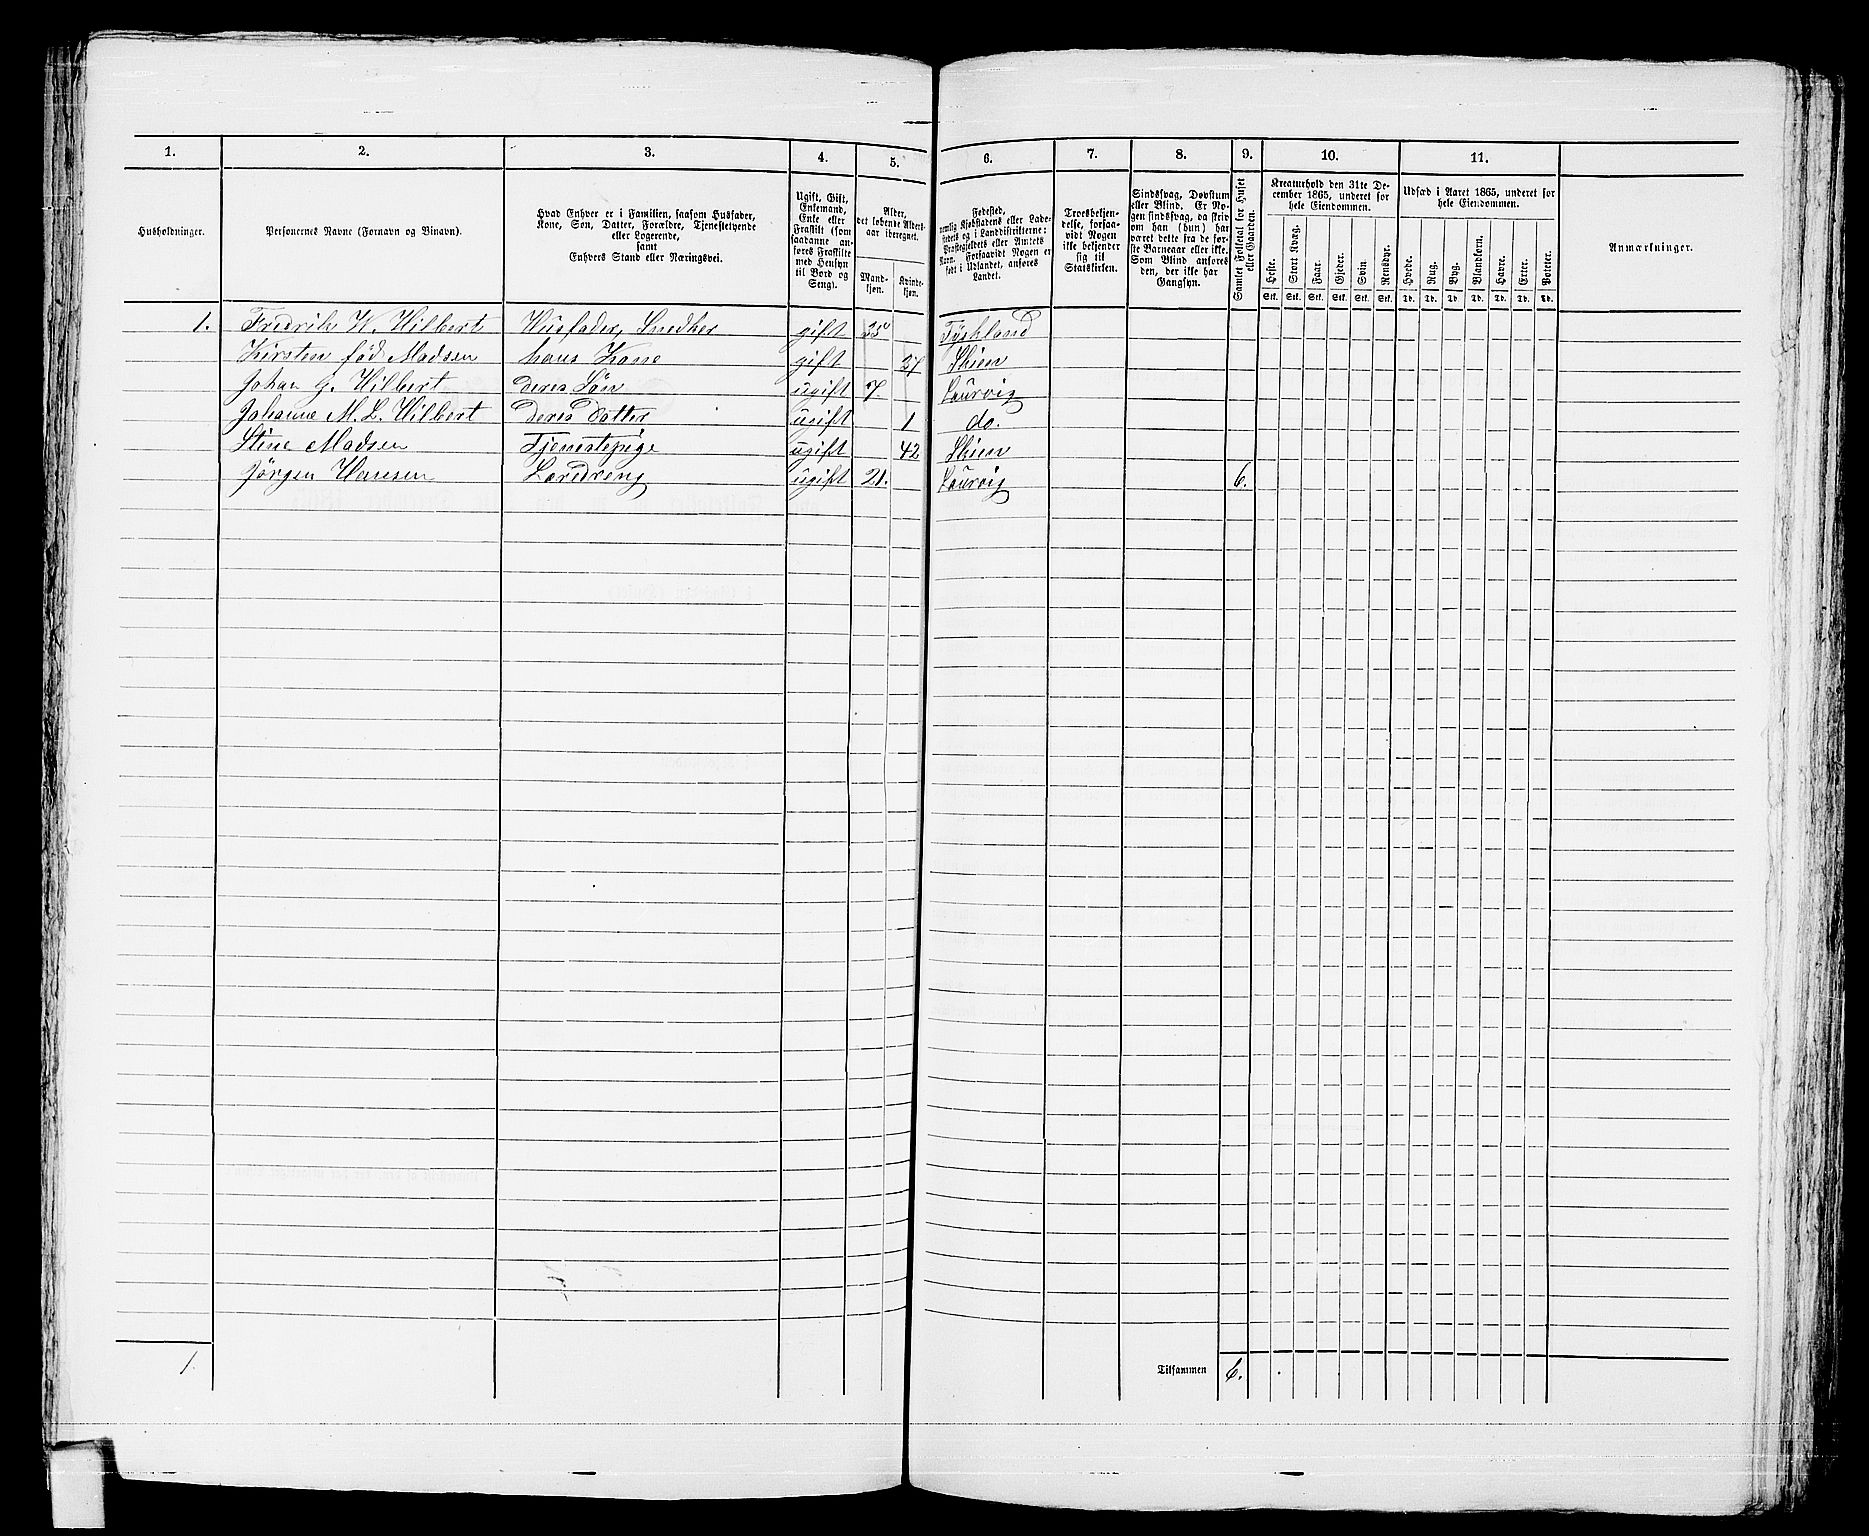 1. 2. 3. 4. 5. 6. 7. 8. 9. 10. 11.
Husholdninger.
Personernes Navne (Fornavn og Binavn).
Hvad Enhver er i Familien, saasom Husfader,
Kone, Søn, Datter, Forældre, Tjenestetyende
eller Logerende,
samt
Enhvers Stand eller Næringsvei.
Ugift, Gift,
Enkemand,
Enke eller
Fraskilt (som
saadanne an-
føres Fraskilte
med Hensyn
til Bord og
Seng).
Alder,
det løbende Alders-
aar iberegnet.
Mand-
kjøn.
Kvinde-
kjøn.
Fødested,
nemlig Kjøbstadens eller Lade-
stedets og i Landdistrikterne:
Præstegjeldets eller Amtets
Navn. Forsaavidt Nogen er
født i Udlandet, anføres
Landet.
Troesbekjen-
delse, forsaa-
vidt Nogen
ikke bekjender
sig til
Statskirken.
Sindssvag, Døvstum
eller Blind. Er No-
gen sindssvag, da skriv
om han (hun) har
været dette fra de før-
ste Barneaar eller ikke.
Som Blind anføres
den, der ikke har
Gangsyn.
Samlet Folketal for Huset
eller Gaarden.
Kreaturhold den 31te De-
cember 1865, underet for
hele Eiendommen.
Heste. Stort Kvæg. Faar. Gjeder. Svin. Rensdyr.
Stk. Stk. Stk. Stk. Stk. Stk.
Udsæd i Aaret 1865, underet for
hele Eiendommen.
Hvede. Rug. Byg. Blandkorn. Havre. Erter. Poteter.
Td. Td. Td. Td. Td. Td. Td.
Anmærkninger.
1. Fredrik W. Hilbert Husfader, Snedker gift 35 Tyskland
Kirsten född Madsen hans Kone gift 27 Skien
Johan G. Hilbert Deres Søn ugift 7. Laurvig
Johanne M. L. Hilbert Deres Datter ugift 1 do.
Stine Madsen Tjenestepige ugift 42 Skien
Jørgen Hansen Læredreng ugift 21. Laurvig 6.
1. Tilsammen 6.